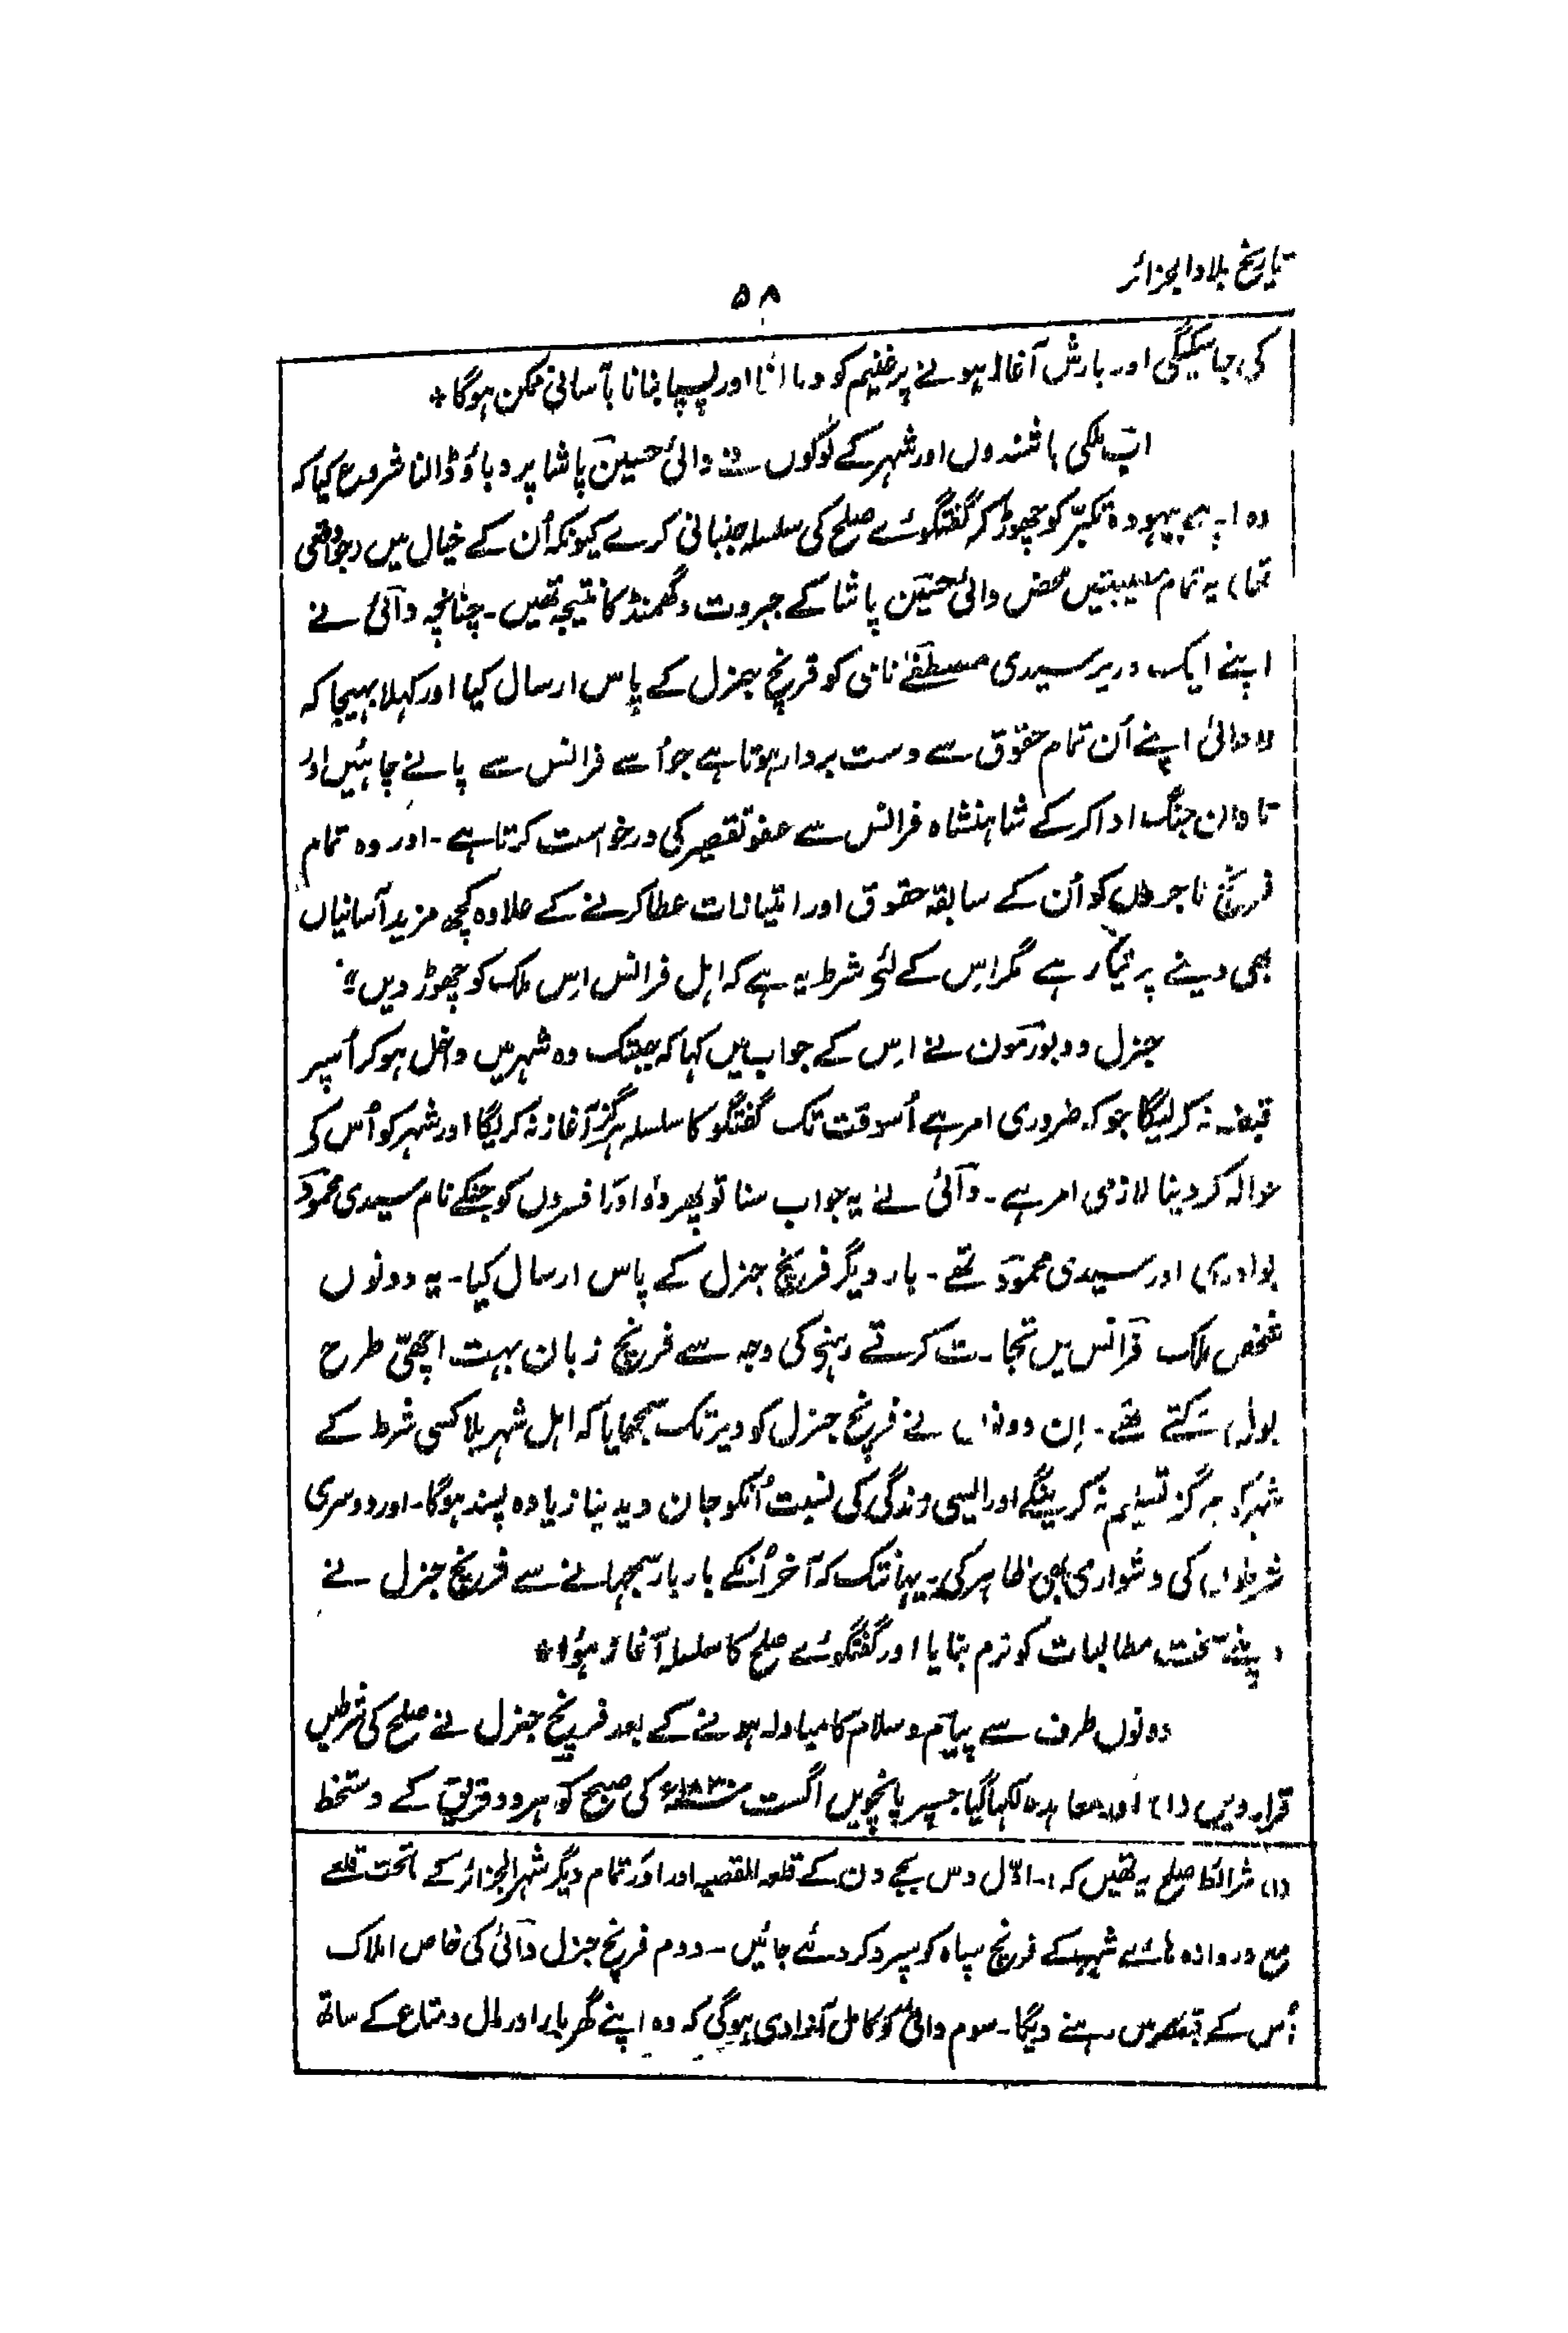 تاریخ بلاد الجزائر
۵۸
کی جا سکیگی اور بارش آغاز ہونے پر غنیم کو دبانا اور پسپا بنانا بآسانی ممکن ہوگا *
اب ملکی باشندوں اور شہر کے لوگوں نے دائی حسین پاشا پر دباؤ ڈالنا شروع کیا کہ
وہ اپنے بیہودہ تکبّر کو چھوڑ کر گفتگوئے صلح کی سلسلہ جنبانی کرے کیونکہ اُن کے خیال میں (جو واقعی
تھا) یہ تمام مصیبتیں محض دائی حسین پاشا کے جبروت و گھمنڈ کا نتیجہ تھیں۔ چنانچہ دائی نے
اپنے ایک وزیر سیدی مصطفےٰ نامی کو فرینچ جنرل کے پاس ارسال کیا اور کہلا بھیجا کہ
"دائی اپنے اُن تمام حقوق سے دست بردار ہوتا ہے جو اُسے فرانس سے پانے چاہئیں اور
تاوان جنگ ادا کر کے شاہنشاہ فرانس سے عفو تقصیر کی درخواست کرتا ہے۔ اور وہ تمام
فرینچ تاجروں کو اُن کے سابقہ حقوق اور امتیازات عطا کرنے کے علاوہ کچھ مزید آسانیاں
بھی دینے پر تیار ہے مگر اِس کے لئے شرط یہ ہے کہ اہل فرانس اِس ملک کو چھوڑ دیں"۔
جنرل دو بورمون نے اِس کے جواب میں کہا کہ جبتک وہ شہر میں داخل ہو کر اُسپر
قبضہ نہ کر لیگا جو کہ ضروری امر ہے اُسوقت تک گفتگو کا سلسلہ ہرگز آغاز نہ کریگا اور شہر کو اُس کے
حوالہ کر دینا لازمی امر ہے۔ دائی نے یہ جواب سنا تو پھر دو اور افسروں کو جنکے نام سیدی محمود
بوادری اور سیدی محمود تھے۔ بار دیگر فرینچ جنرل کے پاس ارسال کیا۔ یہ دونوں
شخص ملک فرانس میں تجارت کرتے رہنے کی وجہ سے فرینچ زبان بہت اچھی طرح
بول سکتے تھے۔ اِن دونوں نے فرینچ جنرل کو دیر تک سمجھایا کہ اہل شہر بلا کسی شرط کے
شہر کو ہرگز تسلیم نہ کرینگے اور ایسی زندگی کی نسبت اُنکو جان دیدینا زیادہ پسند ہوگا۔ اور دوسری
شرطوں کی دشواری بھی ظاہر کی۔ یہانتک کہ آخر اُنکے بار بار سمجہانے سے فرینچ جنرل نے
اپنے سخت مطالبات کو نرم بنایا اور گفتگوئے صلح کا سلسلہ آغاز ہوُا *
دونوں طرف سے پیام و سلام کا مبادلہ ہونے کے بعد فرینچ جنرل نے صلح کی شرطیں
قرار دیں (۱) اور معاہدہ لکہا گیا جسپر پانچویں اگست ۱۸۳۰ء کی صبح کو ہر دو فریق کے دستخط
(۱) شرائط صلح یہ تھیں کہ:۔ اوّل دس بجے دن کے قلعہ القصبہ اور اَور تمام دیگر شہر الجزائر کے ماتحت قلعے
مع دروازہ ہائے شہر کے فرینچ سپاہ کو سپرد کر دئے جائیں۔ دوم فرینچ جنرل دائی کی خاص املاک
اُس کے قبضہ میں رہنے دیگا۔ سوم دائی کو کامل آزادی ہوگی کہ وہ اپنے گھر بار اور مال و متاع کے ساتھ